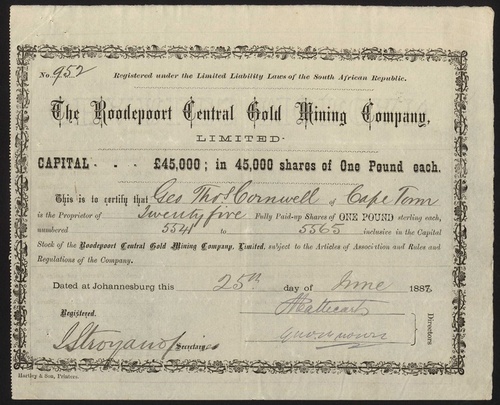 No. 952 Registered under the Limited Liability Laws of the South African Republic.
The Roodepoort Central Gold Mining Company,
LIMITED.
CAPITAL - - - £45,000; in 45,000 shares of One Pound each.
This is to certify that Geo Thos Cornwell of Cape Town
is the Proprietor of Twenty five Fully Paid-up Shares of ONE POUND sterling each,
numbered 5541 to 5565 inclusive in the Capital
Stock of the Roodepoort Central Gold Mining Company, Limited, subject to the Articles of Association and Rules and
Regulations of the Company.
Dated at Johannesburg this 25th day of June 1887.
Registered.
Secretary.
Directors
Hortley & Son, Printers.